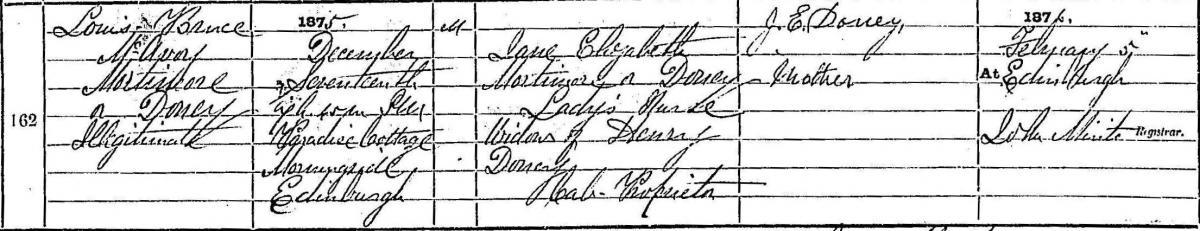 162
Louis Bruce
McAvoy
Mortimore
or Dorey
Illegitimate
1875.
December
Seventeenth
Paradise Cottage
Morningside
Edinburgh
M
Jane Elizabeth
Mortimore or Dorey
Lady's Nurse
Widow of Henry
Dorey
Cab-Proprietor
J. E. Dorey,
Mother
1876.
February 5"
At Edinburgh
John Registrar.